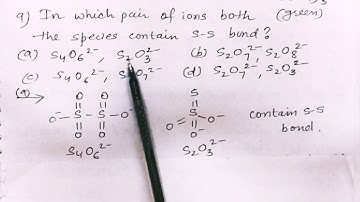 9) In which pair of ions both (green)
the species contain S-S bond?
(a) S4O6²⁻, S2O3²⁻ (b) S2O7²⁻, S2O8²⁻
(c) S4O6²⁻, S2O7²⁻ (d) S2O7²⁻, S2O3²⁻
(a) O O S
O⁻ S S O⁻ O S O⁻ contain S-S
O O O⁻ bond.
S4O6²⁻ S2O3²⁻